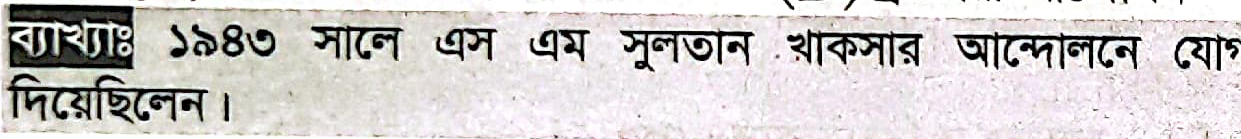 ব্যাখ্যাঃ ১৯৪৩ সালে এস এম সুলতান খাকসার আন্দোলনে যোগ
দিয়েছিলেন।